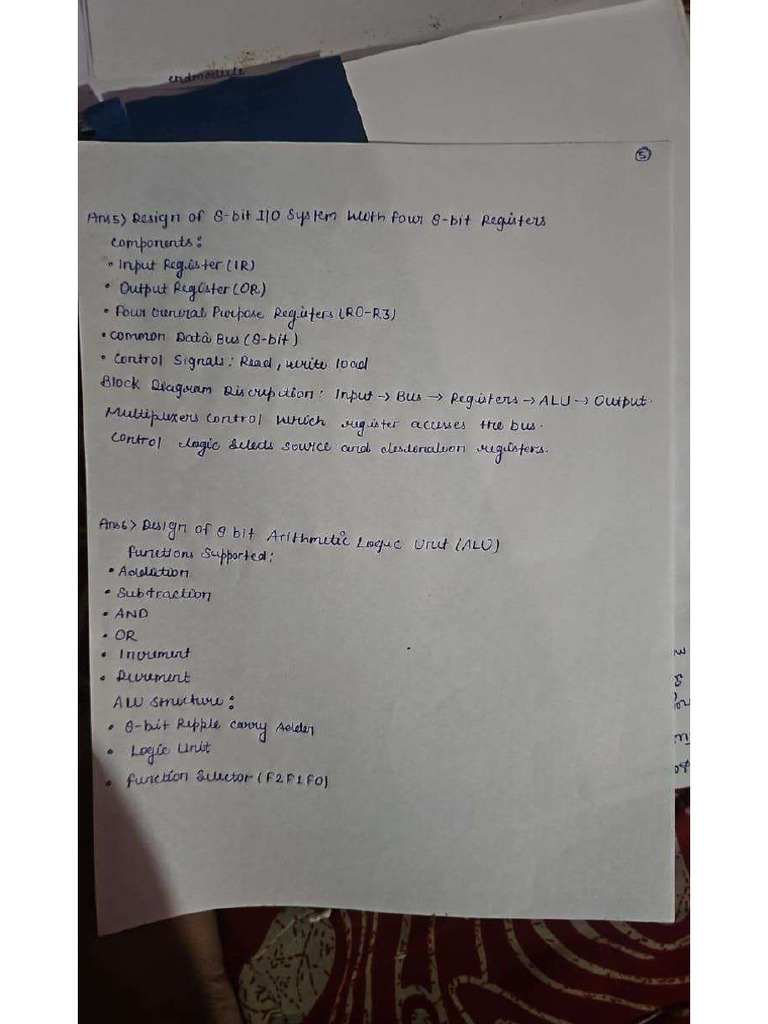 endmodule
5
Ans5) Design of 8-bit I/O System with four 8-bit Registers
Components:
• Input Register (IR)
• Output Register (OR)
• Four General Purpose Registers (R0-R3)
• Common Data Bus (8-bit)
• Control Signals: Read, write load
Block Diagram Discription: Input → Bus → Registers → ALU → Output.
Multiplexers control which register accesses the bus.
Control logic selects source and destination registers.
Ans6) Design of 8 bit Arithmetic Logic Unit (ALU)
Functions Supported:
• Addition
• Subtraction
• AND
• OR
• Increment
• Decrement
ALU Structure:
• 8-bit Ripple carry Adder
• Logic Unit
• Function Selector (F2F1F0)